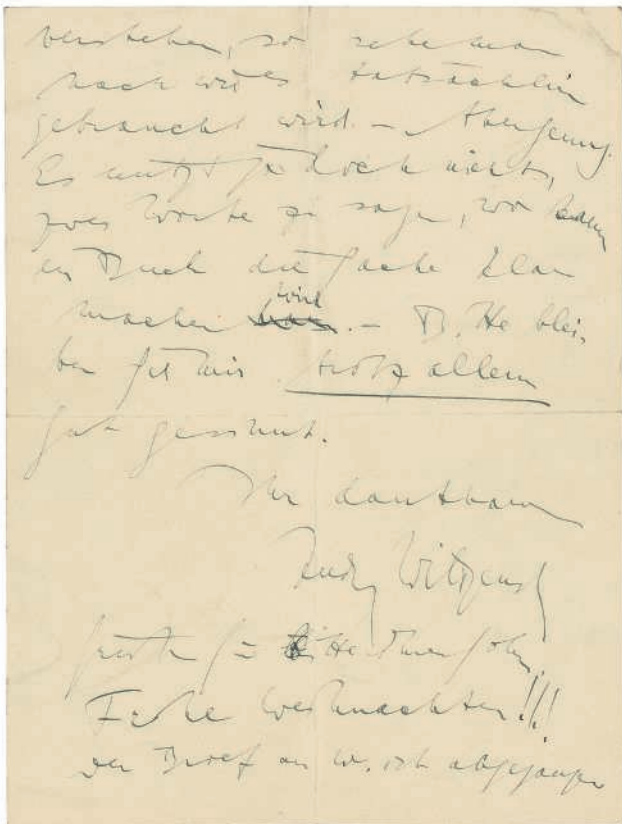 verstehen, so sehe man
nach wie es tatsächlich
gebraucht wird. – Aber genug.
Es nutzt ja doch nichts,
zwei Worte zu sagen, wo
ein Buch die Sache klar
machen wird. – B. Sie blei-
ben Sie mir trotz allem
gut gesinnt.
Ihr dankbarer
Ludwig Wittgenst
grüßen Sie bitte Ihren Sohn.
Frohe Weihnachten!!!
Der Brief an W. ist abgegangen